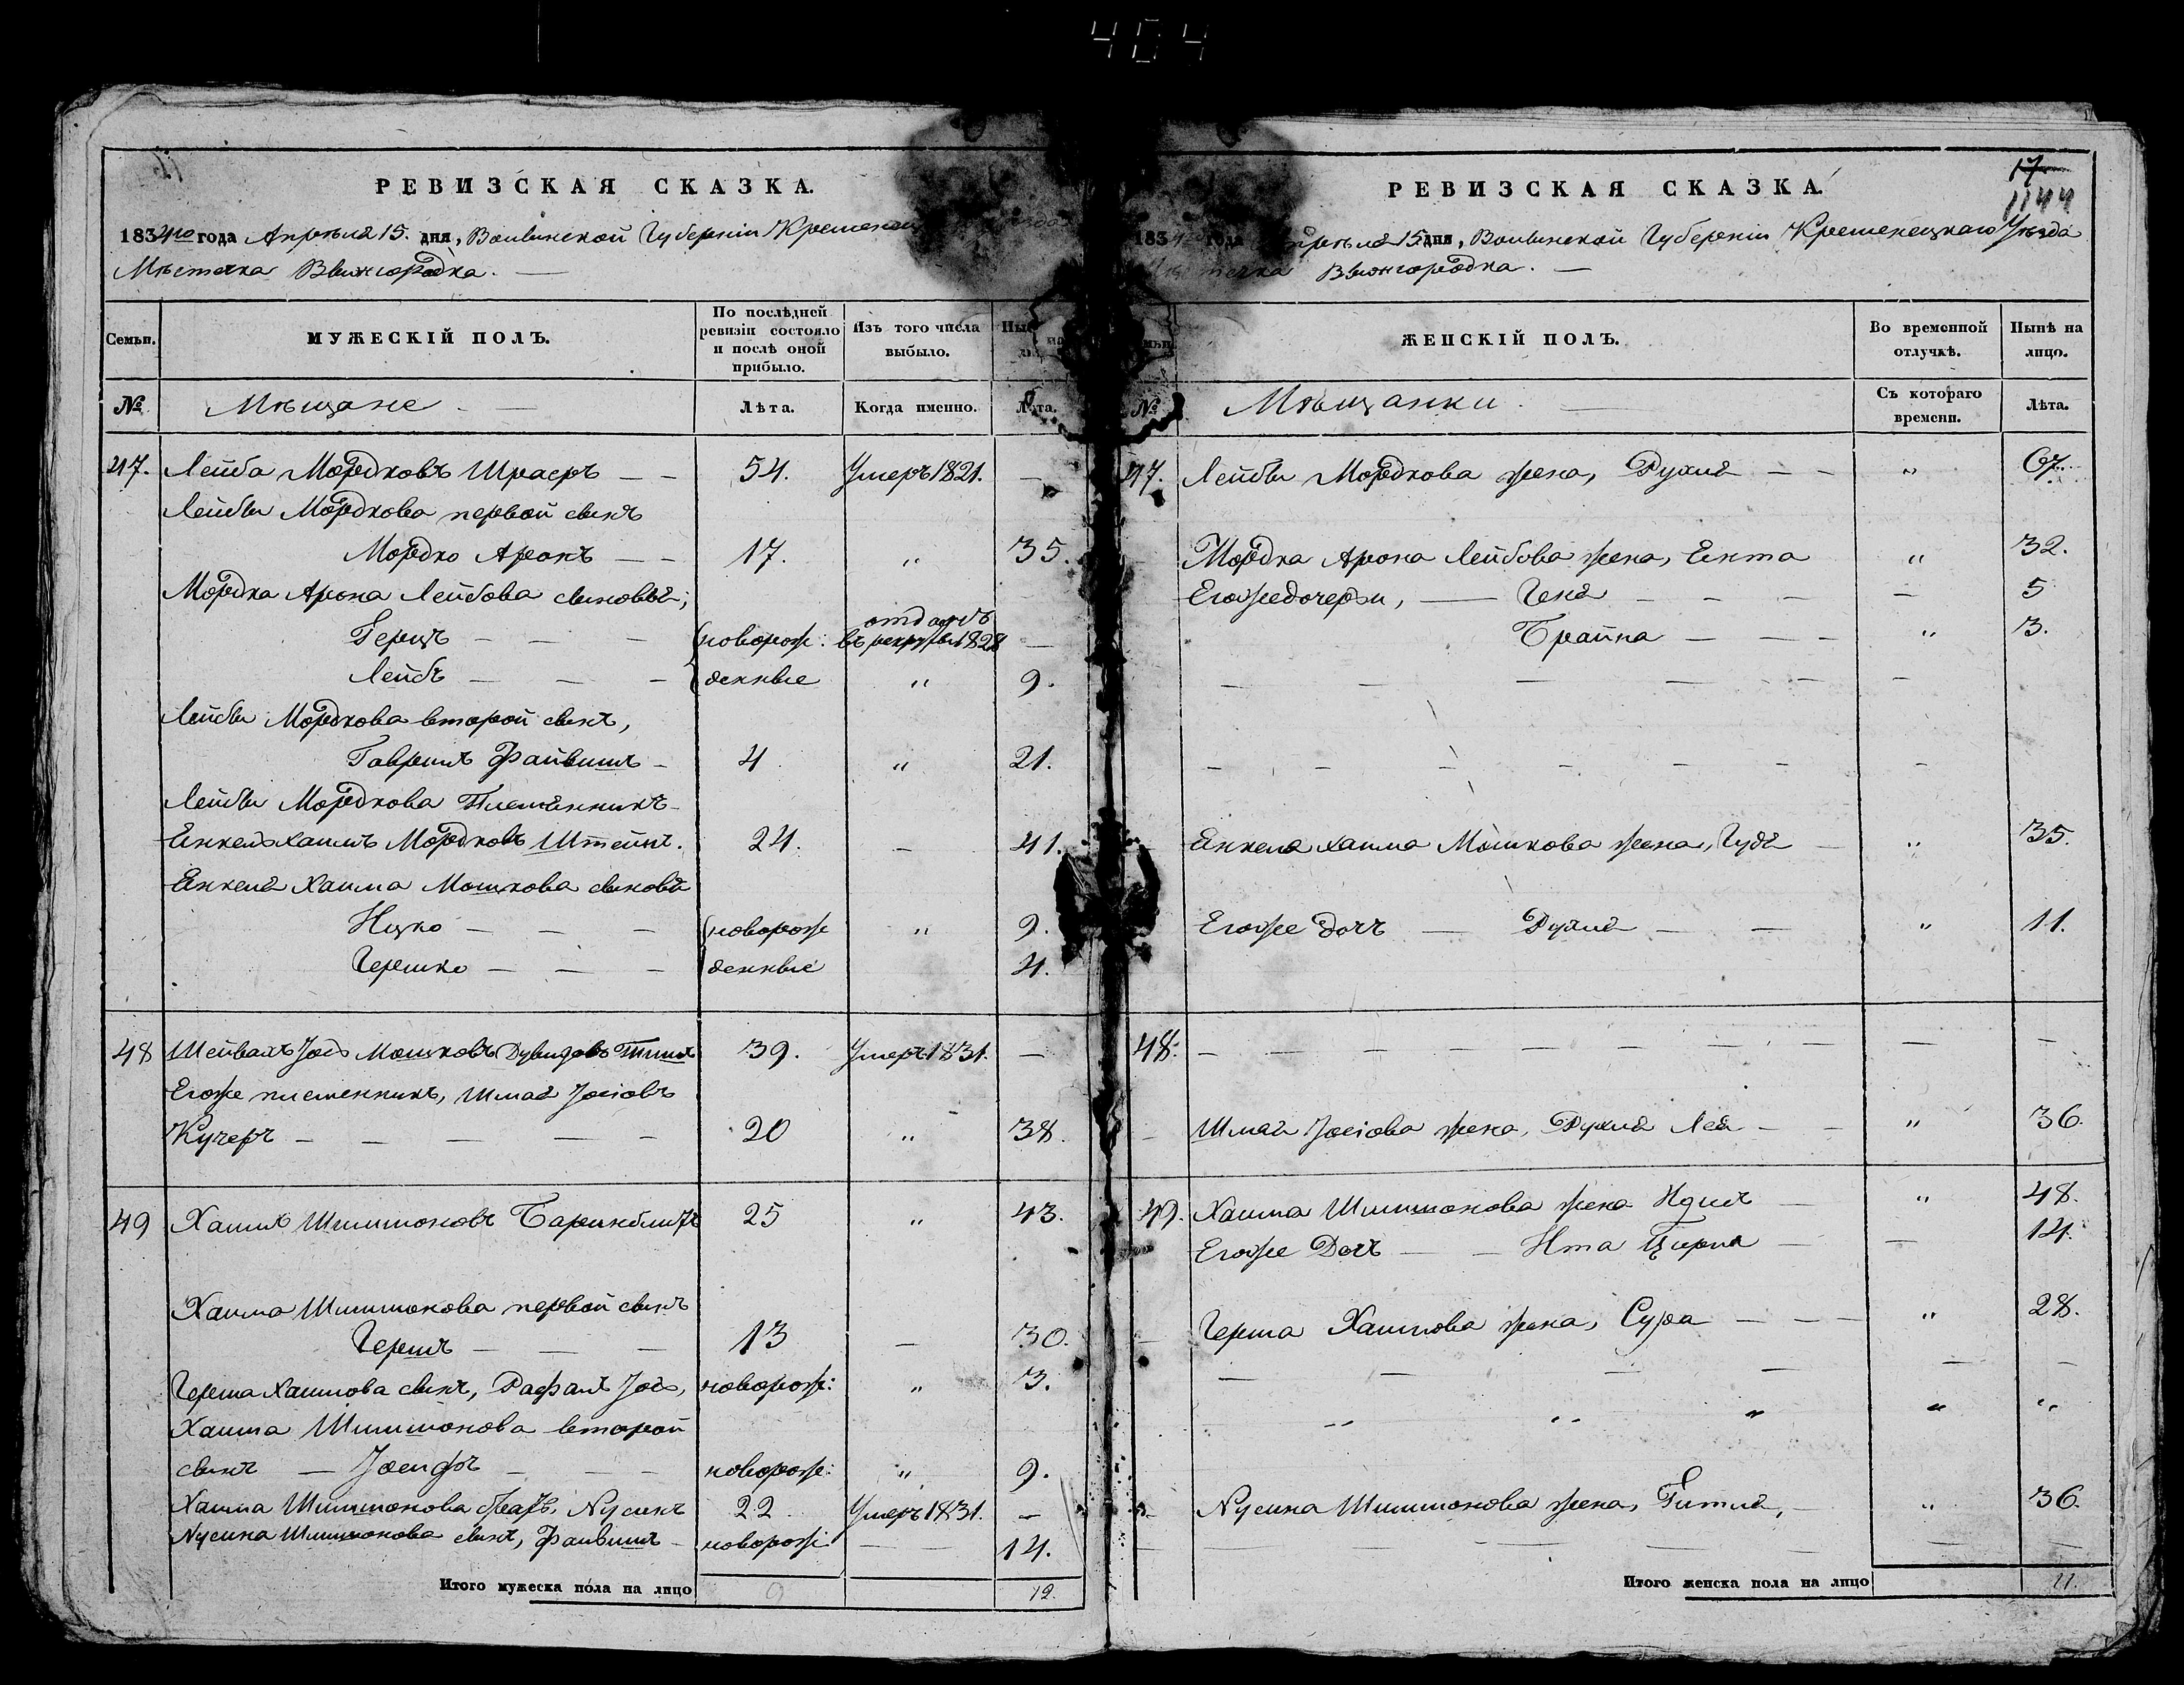 РЕВИЗСКАЯ СКАЗКА.
1834го года Апрѣля 15. дня, Волинской Губерніи
Мѣстечка Вышгородка. —
Семьи.
МУЖЕСКІЙ ПОЛЪ.
По послѣдней ревизіи состояло и послѣ оной прибыло.
Изъ того числа выбыло.
№
Мѣщане
Лѣта.
Когда именно.
Лѣта.
47. Лейба Мордковъ — — 54. Умеръ 1821. —
Лейбы Мордкова первой сынъ
Мордко Аронъ — — 17. „ 35.
Мордка Арона Лейбова сыновья;
Герцъ — — — новорож: отданъ въ рекруты 1828 —
Лейбъ — — — денные „ 9.
Лейбы Мордкова второй сынъ,
Гаврилъ Файвишъ — 4 „ 21.
Лейбы Мордкова Племянникъ
Енкель Хаимъ Мордковъ Штейнъ. 24. — 41.
Енкеля Хаима Мошкова сыновья
Ицко — — — новорож „ 9.
Гершко — — — денные 4.
48 Іось Мошковъ 39. Умеръ 1831. —
Егоже племенникъ, Шмая Іосіовъ
Кучеръ — — — — — 20 „ 38.
49 Хаимъ Шимшоновъ 25 „ 43.
Хаима Шимшонова первой сынъ
Гершъ — — — 13 — 30.
Герша Хаимова сынъ, Рафалъ Іось, новорож: „ 3.
Хаима Шимшонова второй
сынъ — Іосифъ — — — новорож: „ 9.
Хаима Шимшонова братъ, Нусинъ 22. Умеръ 1831. —
Нусина Шимшонова сынъ, Файвишъ — новорож: — — 14.
Итого мужеска пола на лицо 9 12.
РЕВИЗСКАЯ СКАЗКА.
17
1144
1834 года Апрѣля 15 дня, Волинской Губерніи Кременецкаго Уѣзда
Мѣстечка Вышгородка. —
ЖЕНСКІЙ ПОЛЪ.
Во временной отлучкѣ.
Нынѣ на лицо.
№
Мѣщанки. —
Съ котораго времени.
Лѣта.
47. Лейбы Мордкова жена, Рухля — — „ 67.
Мордка Арона Лейбова жена, Ента „ 32.
Егоже дочери, — Геня — — — — 5
Брайна — — — „ 3.
— — — — — —
— — — — — — —
Енкеля Хаима Мошкова жена, Гудя — „ 35.
Егоже дочь — Рухля — — „ 11.
48. — — — — — — — — — —
— Шмаи Іосіова жена, Рухля Лея — — „ 36.
49. Хаима Шимшонова жена — „ 48.
Егоже Дочь — — Ита Цирля — — 14.
— Герша Хаимова жена, Сура — — — „ 28.
— — — — — —
„ „ „ „ „
— Нусина Шимшонова жена, Гитля, — „ 36.
— — — — — — —
Итого женска пола на лицо 11.